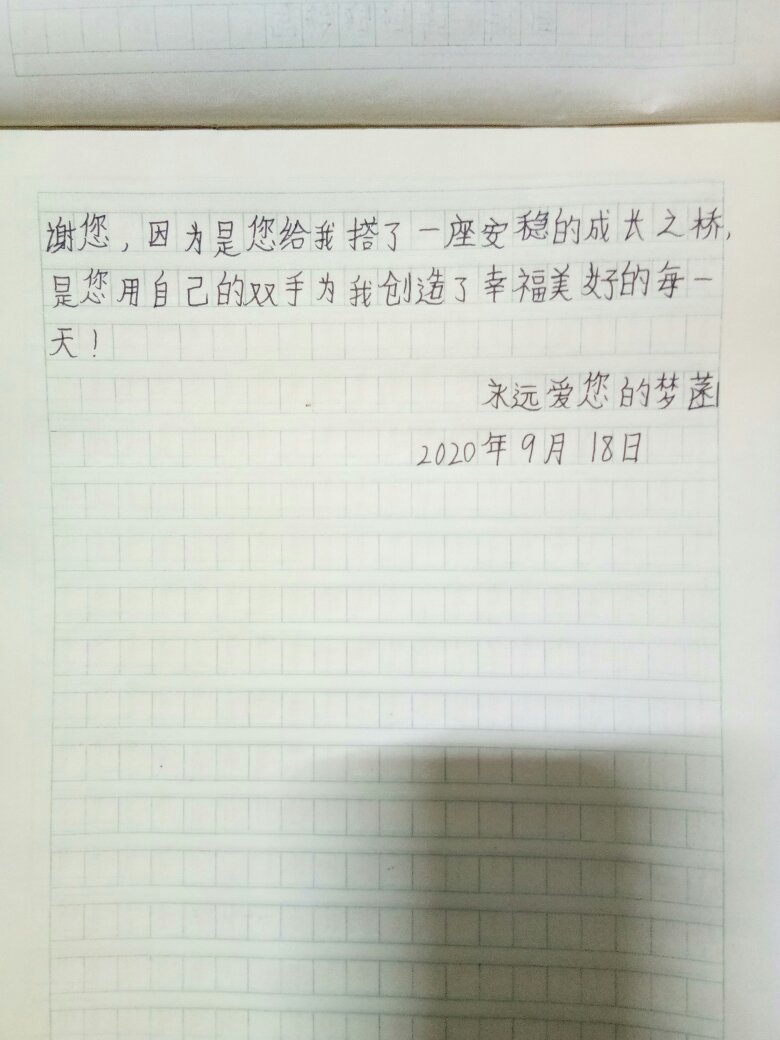 谢您，因为是您给我搭了一座安稳的成长之桥，
是您用自己的双手为我创造了幸福美好的每一
天！
永远爱您的梦菡
2020年9月18日